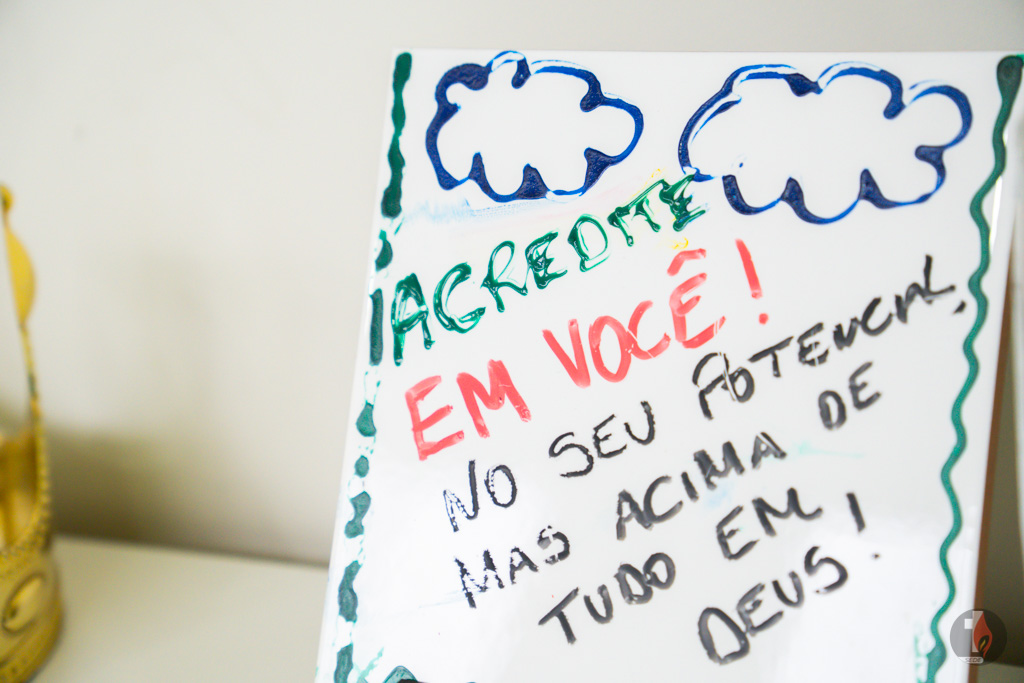 ACREDITE
EM VOCÊ!
NO SEU POTENCIAL,
MAS ACIMA DE
TUDO EM
DEUS!